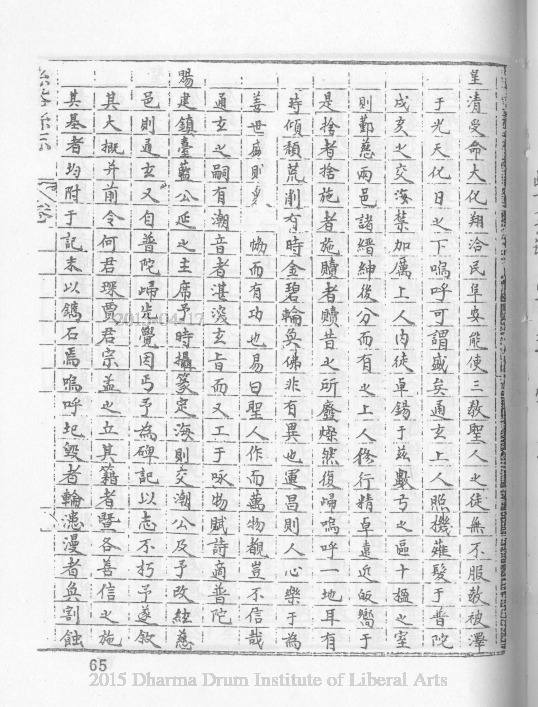 皇清受命大化翔洽民阜安能使三教聖人之徒無不服教被澤
于光天化日之下嗚呼可謂盛矣通玄上人照機薙髮于普陀
戌亥之交海禁加厲上人内徙卓錫于茲數弓之區十搵之室
則鄞慈兩邑諸縉紳後分而有之上人修行精卓遠近皈嚮于
是捨者捨施者施贖者贖昔之所廢燦然復歸嗚呼一地耳有
時傾頹荒削有時金碧輪奐佛非有異也運昌則人心樂于為
善世盛則 恊而有功也易曰聖人作而萬物覩豈不信哉
通玄之嗣有潮音者湛深玄旨而又工于咏物賦詩適普陀
賜建鎮臺藍公延之主席予時攝篆定海則交潮公及予改紱慈
邑則通玄又自普陀歸先覺因丐予為碑記以志不朽予遂敘
其大概并前令何君琛賈君宗益之立其籍者暨各善信之施
其基者均附于記末以鐫石焉嗚呼圯毀者輪漶漫者奐割蝕
65
2015 Dharma Drum Institute of Liberal Arts